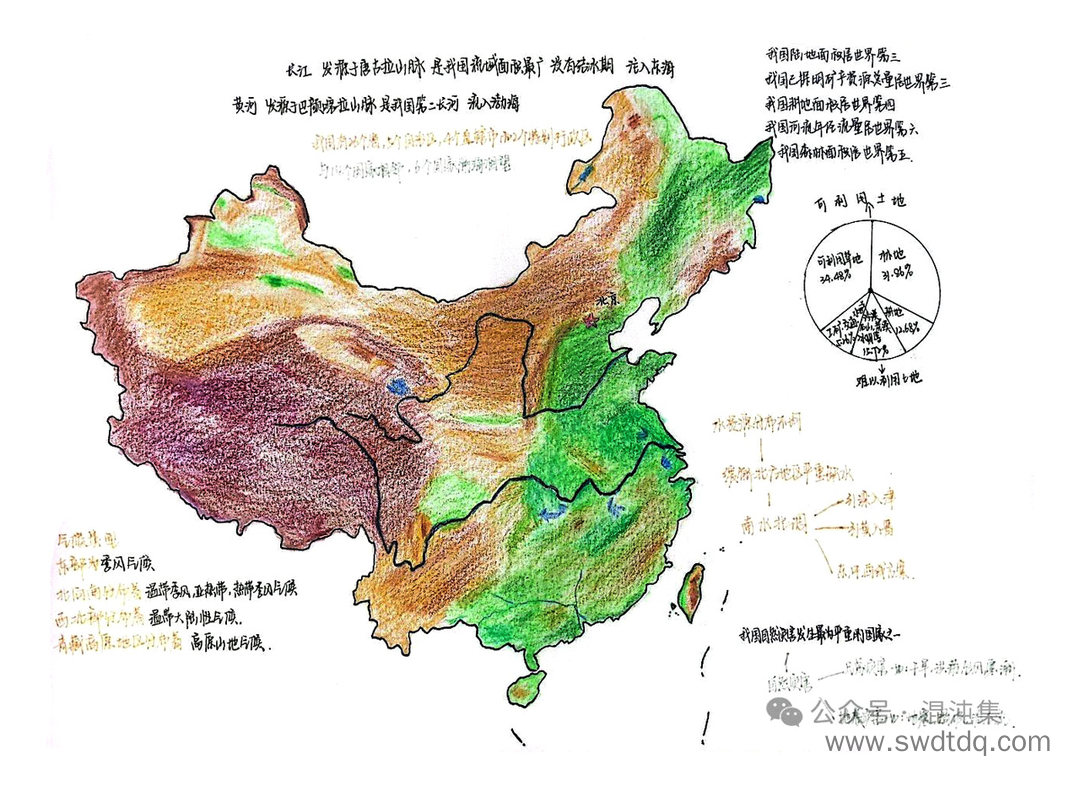 长江 发源于唐古拉山脉 是我国流域面积最广 没有结冰期 注入东海
黄河 发源于巴颜喀拉山脉 是我国第二长河 流入渤海
我国有23个省,5个自治区,4个直辖市和2个特别行政区
与14个国家相邻,6个国家隔海相望
我国陆地面积居世界第三
我国已探明矿产资源总量居世界第三
我国耕地面积居世界第四
我国河流年径流量居世界第六
我国森林面积居世界第五.
可利用土地
可利用草地
34.48%
林地
31.86%
耕地
12.68%
难以利用土地
北京
水资源分布不均
华北地区严重缺水
南水北调
引滦入津
引黄入
气候类型
东部为季风气候
北向南分布着 温带季风,亚热带,热带季风气候
西北部分布着 温带大陆性气候.
青藏高原地区分布着 高原山地气候.
我国自然灾害发生最为严重的国家之一
自然灾害
公众号·混沌集
www.swdtdq.com